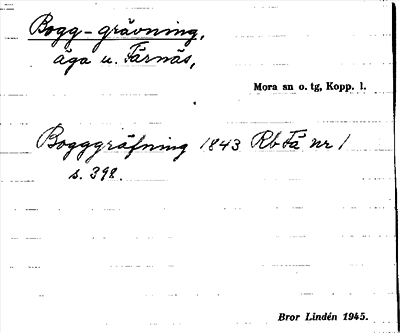 Bogg-grävning,
äga u. Färnäs,
Mora sn o. tg, Kopp. l.
Bogggräfning 1843 Rb Fä nr 1
s. 398.
Bror Lindén 1945.